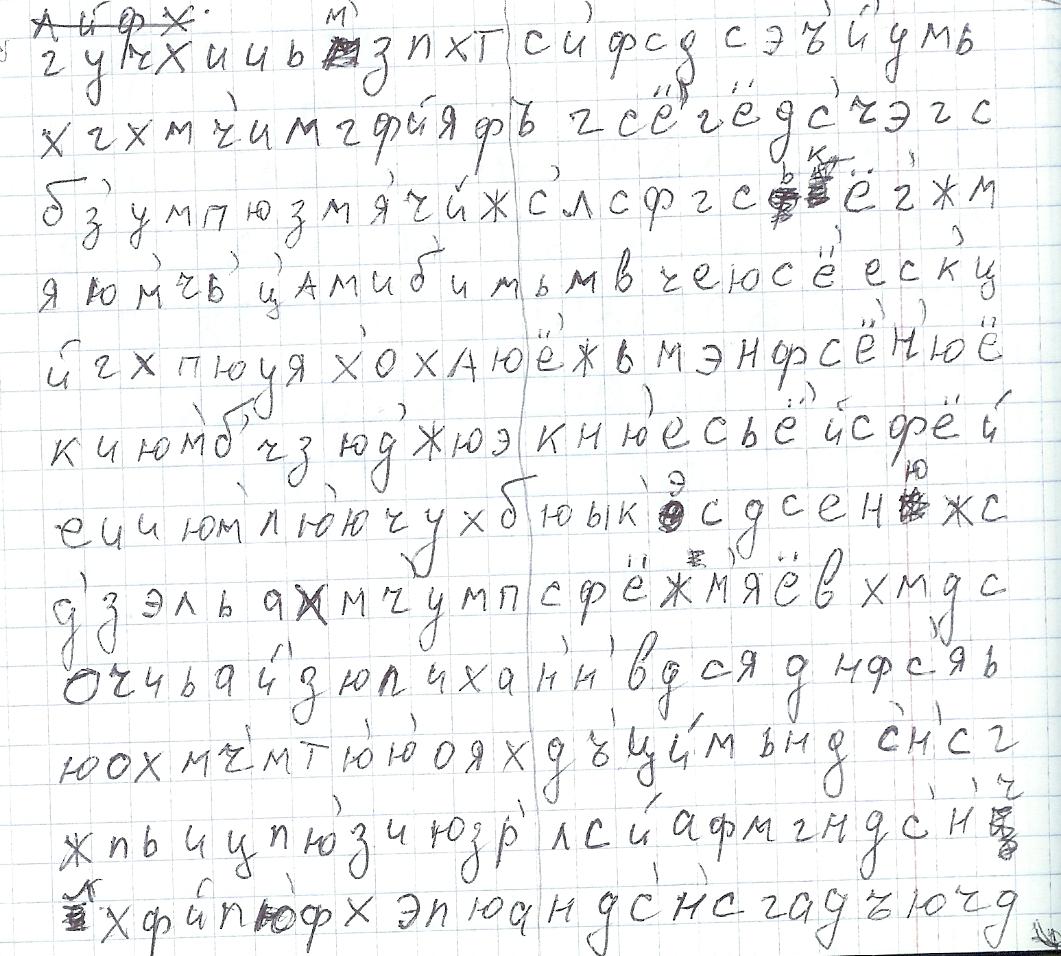 А Й Ф Х
г у ч х и и ь м з п х т с и ф с д с э ъ й у м ь
х г х м ч и м г ф й я ф ъ г с ё г ё д с ч э г с
б з у м п ю з м я ч й ж с л с ф г с ь к ё г ж м
я ю м ч ь ц а м и б и м ь м в ч е ю с ё е с к ц
й г х п ю у я х о х а ю ё ж ь м э н ф с ё н ю ё
к и ю м б ч з ю д ж ю э к н ю е с ь ё й с ф ё й
е ц и ю м л ю ю ч у х б ю ы к э с д с е н ю ж с
д з э л ь а х м ч у м п с ф ё ж м я ё в х м д с
о ч и ь а й з ю л и х а н н в д с я д н ф с я ь
ю о х м ч м т ю ю о я х д ъ ц й м ь н д с н с г
ж п ь и ц п ю з и ю з р л с й а ф м г н д с н ч
х ф й п ю ф х э п ю а н д с н с г а д ъ ю ч д